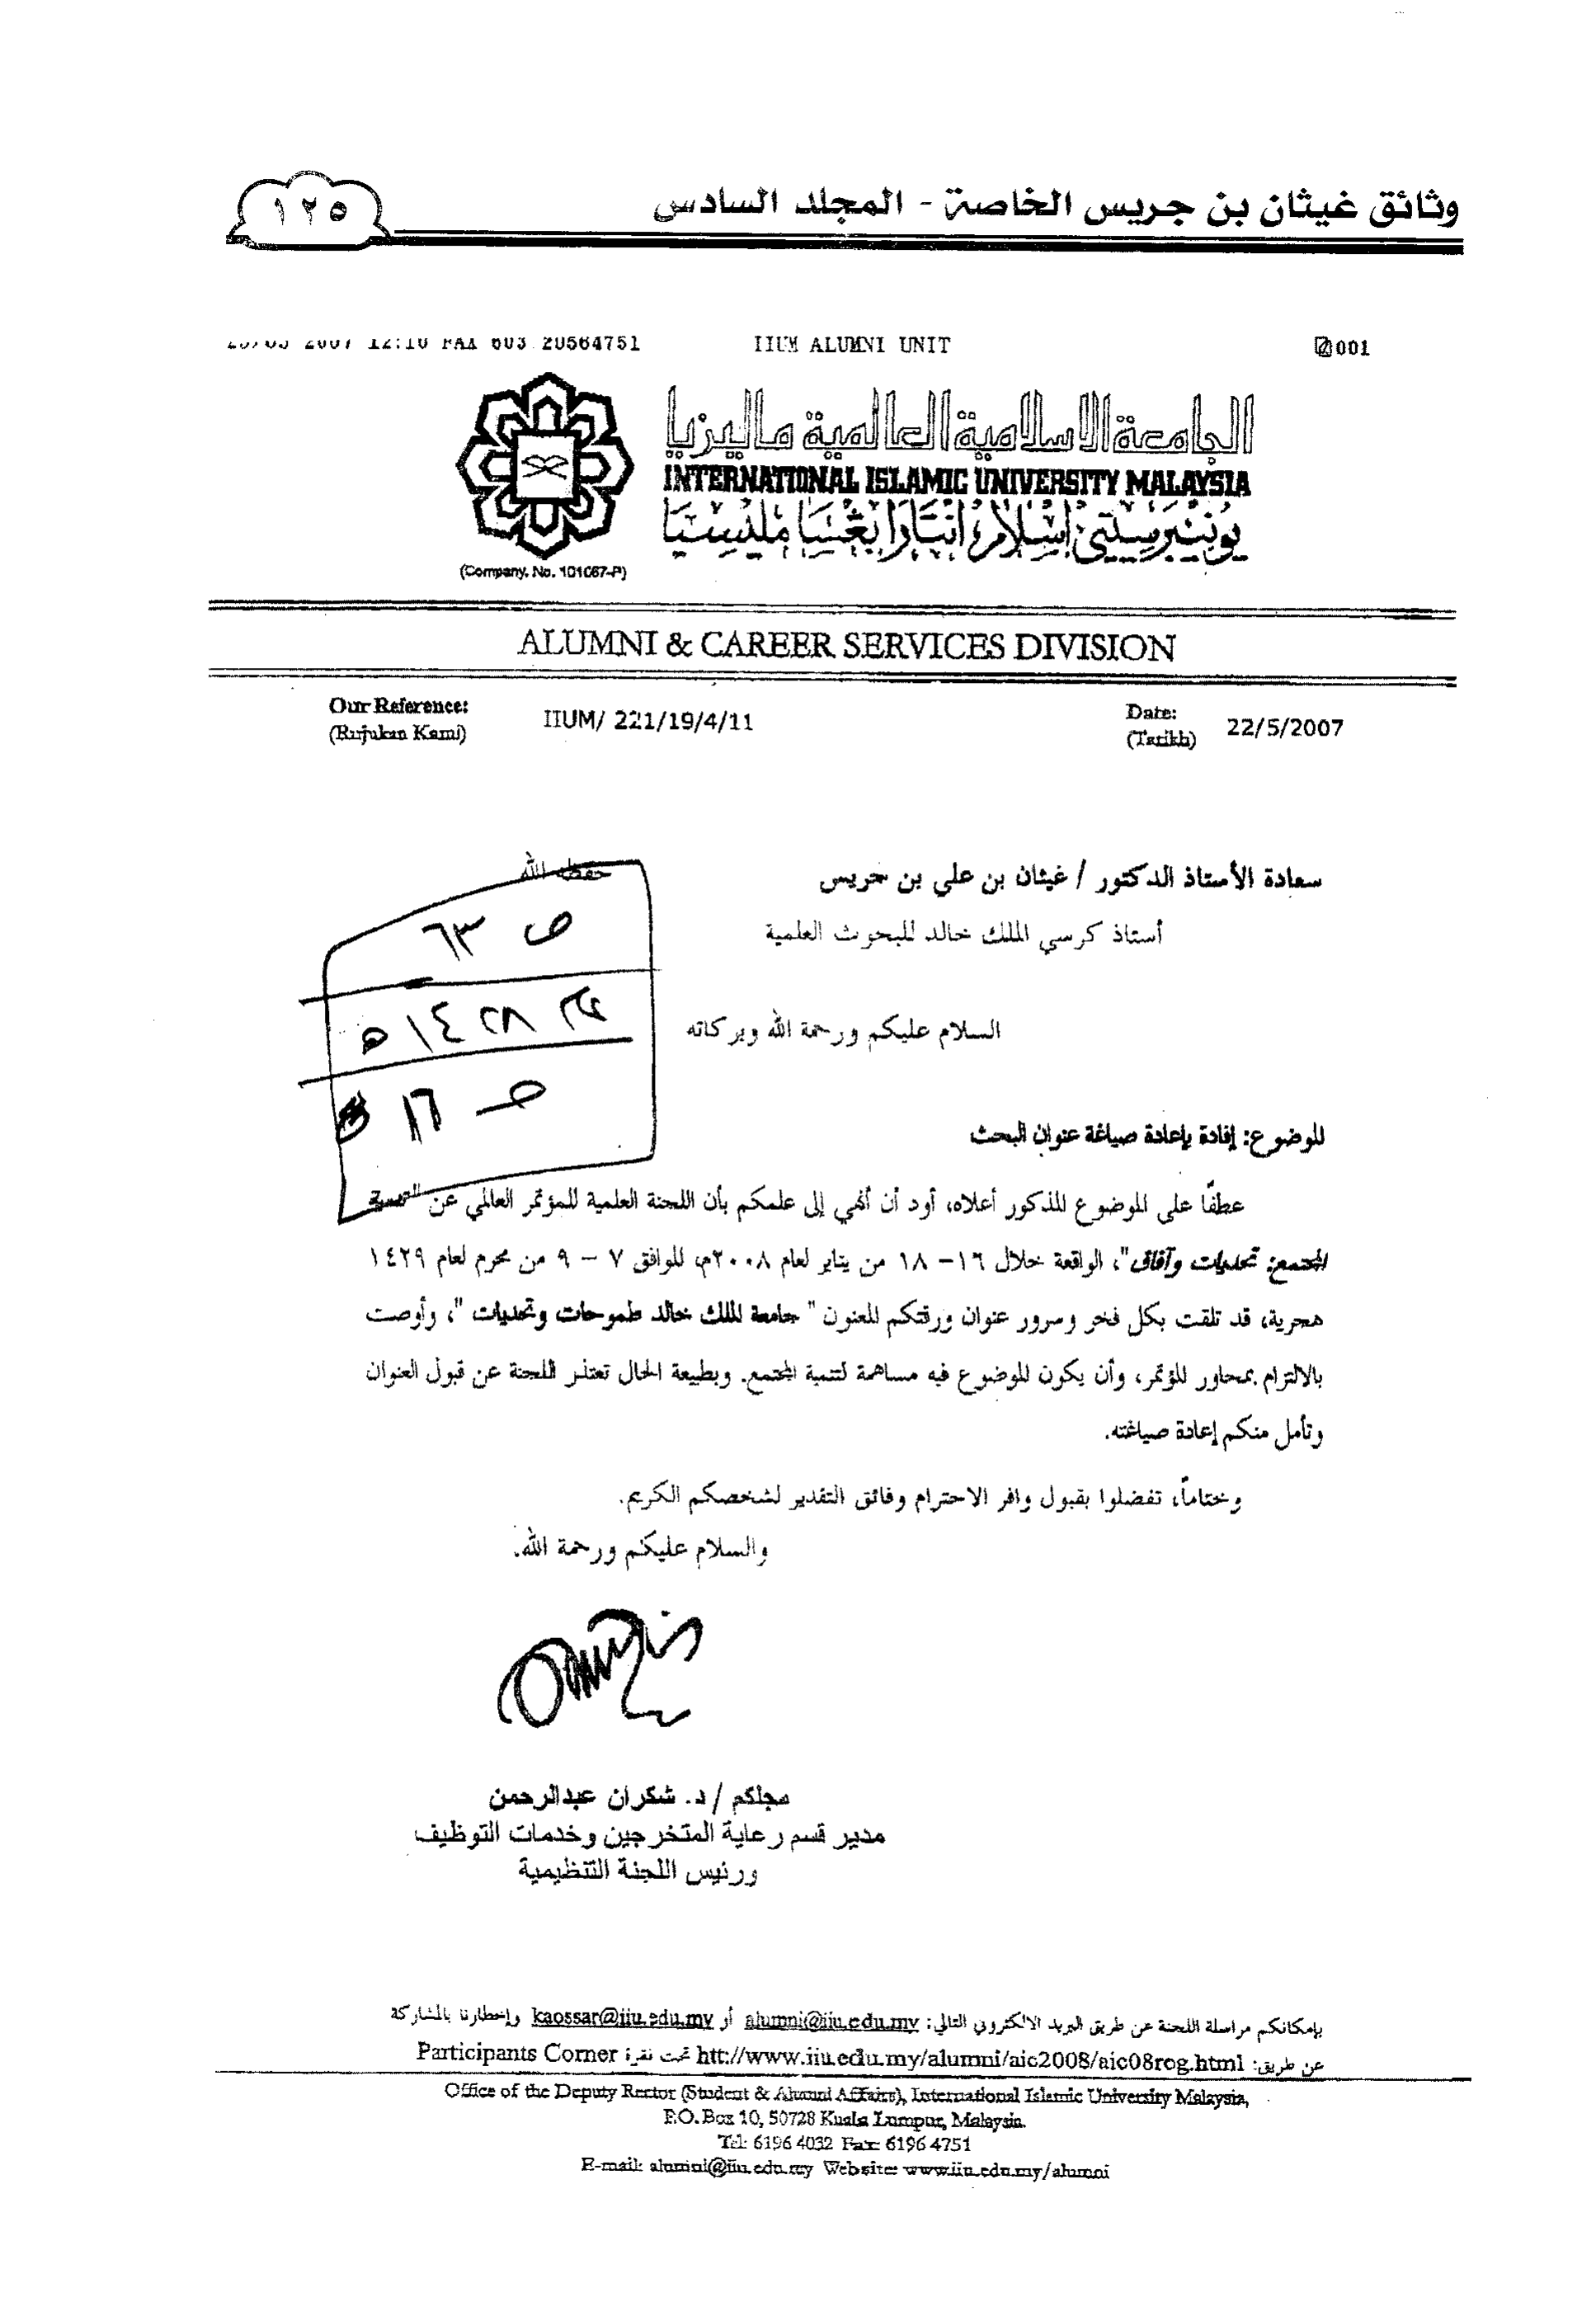 وثائق غيثان بن جريس الخاصة - المجلد السادس
١٢٥
2007 12:10 FAX 603 20564751 IIUM ALUMNI UNIT 001
الجامعة الاسلامية العالمية ماليزيا
INTERNATIONAL ISLAMIC UNIVERSITY MALAYSIA
يونيۏرسيتي اسلام انتارابڠسا مليسيا
(Company. No. 101067-P)
ALUMNI & CAREER SERVICES DIVISION
Our Reference: IIUM/ 221/19/4/11 Date: 22/5/2007
(Rujukan Kami) (Tarikh)
سعادة الأستاذ الدكتور / غيثان بن علي بن جريس حفظه الله
أستاذ كرسي الملك خالد للبحوث العلمية
ص ٦٣
عام ١٤٢٨ هـ
ص ١٦
السلام عليكم ورحمة الله وبركاته
الموضوع: إفادة بإعادة صياغة عنوان البحث
عطفًا على الموضوع المذكور أعلاه، أود أن أنهي إلى علمكم بأن اللجنة العلمية للمؤتمر العالمي عن "تنمية
المجتمع: تحديات وآفاق"، الواقعة خلال ١٦- ١٨ من يناير لعام ٢٠٠٨م، الموافق ٧ – ٩ من محرم لعام ١٤٢٩
هجرية، قد تلقت بكل فخر وسرور عنوان ورقتكم المعنون " جامعة الملك خالد طموحات وتحديات "، وأوصت
بالالتزام بمحاور المؤتمر، وأن يكون الموضوع فيه مساهمة لتنمية المجتمع. وبطبيعة الحال تعتذر اللجنة عن قبول العنوان
وتأمل منكم إعادة صياغته.
وختاماً، تفضلوا بقبول وافر الاحترام وفائق التقدير لشخصكم الكريم.
والسلام عليكم ورحمة الله.
محلكم / د. شكران عبدالرحمن
مدير قسم رعاية المتخرجين وخدمات التوظيف
ورئيس اللجنة التنظيمية
بإمكانكم مراسلة اللجنة عن طريق البريد الالكتروني التالي: alumni@iiu.edu.my أو kaossar@iiu.edu.my وإخطارنا بالمشاركة
عن طريق: htt://www.iiu.edu.my/alumni/aic2008/aic08rog.html تحت نقرة Participants Corner
Office of the Deputy Rector (Student & Alumni Affairs), International Islamic University Malaysia,
P.O. Box 10, 50728 Kuala Lumpur, Malaysia.
Tel: 6196 4032 Fax: 6196 4751
E-mail: alumni@iiu.edu.my Website: www.iiu.edu.my/alumni